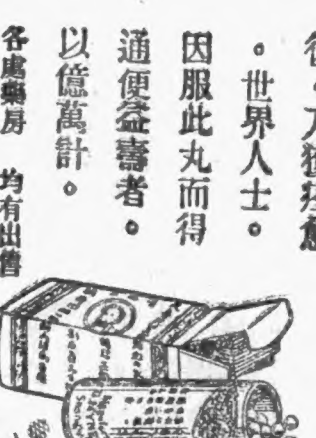 方獲痊愈
。世界人士。
因服此丸而得
通便益壽者。
以億萬計。
各處藥房　均有出售